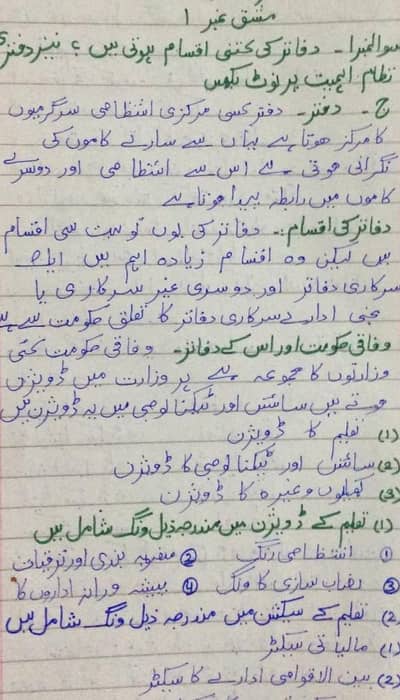 مشق نمبر ۱
سوالنمبر۱۔ دفاتر کی کتنی اقسام ہوتی ہیں ؟ نیز دفتری
نظام اہمیت پر نوٹ لکھیں
ج۔ دفتر۔ دفتر کسی مرکزی انتظامی سرگرمیوں
کا مرکز ہوتا ہے یہاں سے سارے کاموں کی
نگرانی ہوتی ہے اس سے انتظامی اور دوسرے
کاموں میں رابطہ پیدا ہوتا ہے
دفاتر کی اقسام:۔ دفاتر کی یوں تو بہت سی اقسام
ہیں لیکن وہ اقسام زیادہ اہم ہیں ایک
سرکاری دفاتر اور دوسری غیر سرکاری یا
نجی ادارے سرکاری دفاتر کا تعلق حکومت سے ہے
وفاقی حکومت اور اس کے دفاتر۔ وفاقی حکومت کئی
وزارتوں کا مجموعہ ہے ہر وزارت میں ڈویژن
ہوتے ہیں سائنس اور ٹیکنالوجی میں یہ ڈویژن ہیں
(1) تعلیم کا ڈویژن
(2) سائنس اور ٹیکنالوجی کا ڈویژن
(3) کھیلوں وغیرہ کا ڈویژن
(1) تعلیم کے ڈویژن میں مندرجہ ذیل ونگ شامل ہیں
① انتظامی ونگ ② منصوبہ بندی اور ترقیات
③ نصاب سازی کا ونگ ④ پیشہ ورانہ اداروں کا
(2) تعلیم کے سیکشن میں مندرجہ ذیل ونگ شامل ہیں
(1) مالیاتی سیکٹر
(2) بین الاقوامی ادارے کا سیکٹر